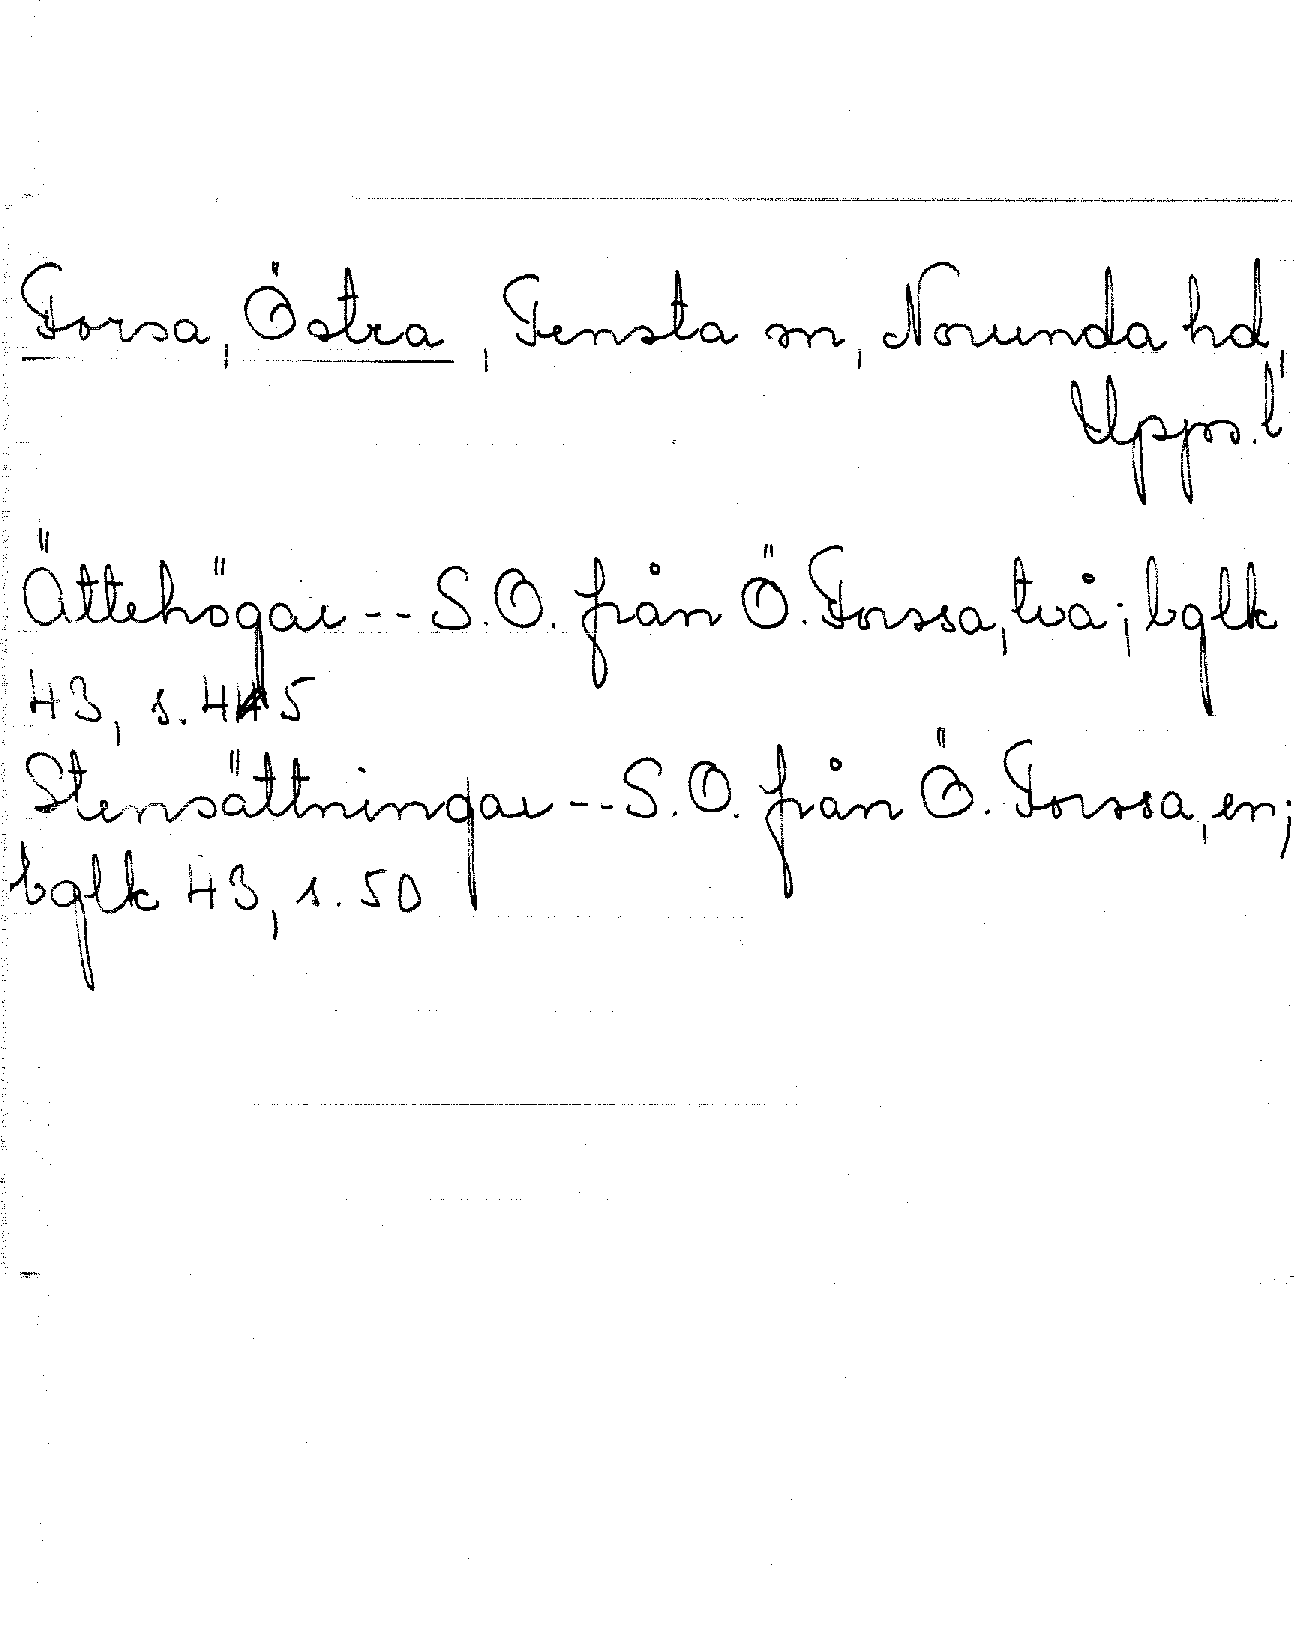 Forsa, Östra, Tensta sn, Norunda hd,
Upps. l
Ättehögar -- S.O. från Ö. Forssa, två; bglk
43, s. 45
Stensättningar -- S.O. från Ö. Forssa, en;
bglk 43, s. 50